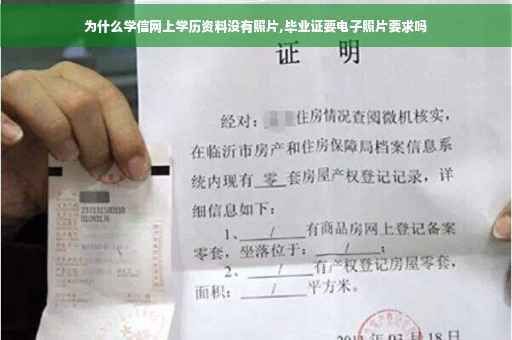 为什么学信网上学历资料没有照片,毕业证要电子照片要求吗
证 明
经对: 住房情况查阅微机核实,
在临沂市房产和住房保障局档案信息系
统内现有 零 套房屋产权登记记录，详
细信息如下：
1、 / 有商品房网上登记备案
零套，坐落位于： / ；
2、 / 有产权登记房屋零套，
面积： / 平方米。